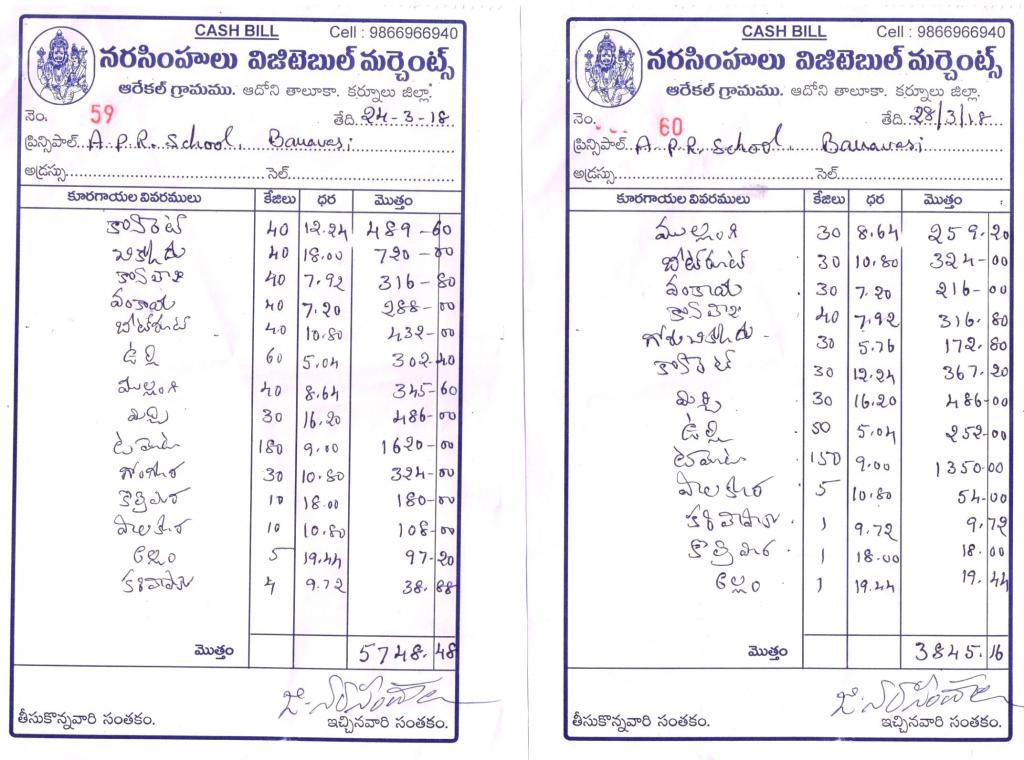 CASH BILL Cell : 9866966940
నరసింహులు విజిటెబుల్ మర్చెంట్స్
ఆరేకల్ గ్రామము. ఆదోని తాలూకా. కర్నూలు జిల్లా.
నెం. 59 తేది. 24-3-18
ప్రిన్సిపాల్. A.P.R. School, Banavasi
అడ్రస్సు. సెల్.
కూరగాయల వివరములు కేజిలు ధర మొత్తం
క్యారెట్ 40 12.24 489-60
చిక్కుడు 40 18.00 720-00
40 7.92 316-80
వంకాయ 40 7.20 288-00
బీట్రూట్ 40 10.80 432-00
ఉల్లి 60 5.04 302-40
ముల్లంగి 40 8.64 345-60
మిర్చి 30 16.20 486-00
టమోటా 180 9.00 1620-00
గోంగూర 30 10.80 324-00
కొత్తిమీర 10 18.00 180-00
పాలకూర 10 10.80 108-00
అల్లం 5 19.44 97-20
కరివేపాకు 4 9.72 38.88
మొత్తం 5748.48
తీసుకొన్నవారి సంతకం. ఇచ్చినవారి సంతకం.
CASH BILL Cell : 9866966940
నరసింహులు విజిటెబుల్ మర్చెంట్స్
ఆరేకల్ గ్రామము. ఆదోని తాలూకా. కర్నూలు జిల్లా.
నెం. 60 తేది. 28/3/18
ప్రిన్సిపాల్. A.P.R. School, Banavasi
అడ్రస్సు. సెల్.
కూరగాయల వివరములు కేజిలు ధర మొత్తం
ముల్లంగి 30 8.64 259.20
బీట్రూట్ 30 10.80 324-00
వంకాయ 30 7.20 216-00
40 7.92 316.80
గోరుచిక్కుడు 30 5.76 172.80
క్యారెట్ 30 12.24 367.20
మిర్చి 30 16.20 486-00
ఉల్లి 50 5.04 252-00
టమోటా 150 9.00 1350-00
పాలకూర 5 10.80 54-00
కరివేపాకు 1 9.72 9.72
కొత్తిమీర 1 18.00 18.00
అల్లం 1 19.44 19.44
మొత్తం 3845.16
తీసుకొన్నవారి సంతకం. ఇచ్చినవారి సంతకం.